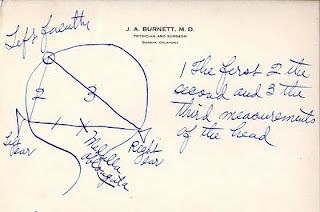 Left faculty
J. A. BURNETT, M. D.
PHYSICIAN AND SURGEON
DURBIN, OKLAHOMA
2
3
1
X
Left
ear
Medulla
oblongata
Right
ear
1 The first 2 the
second and 3 the
third measurements
of the head